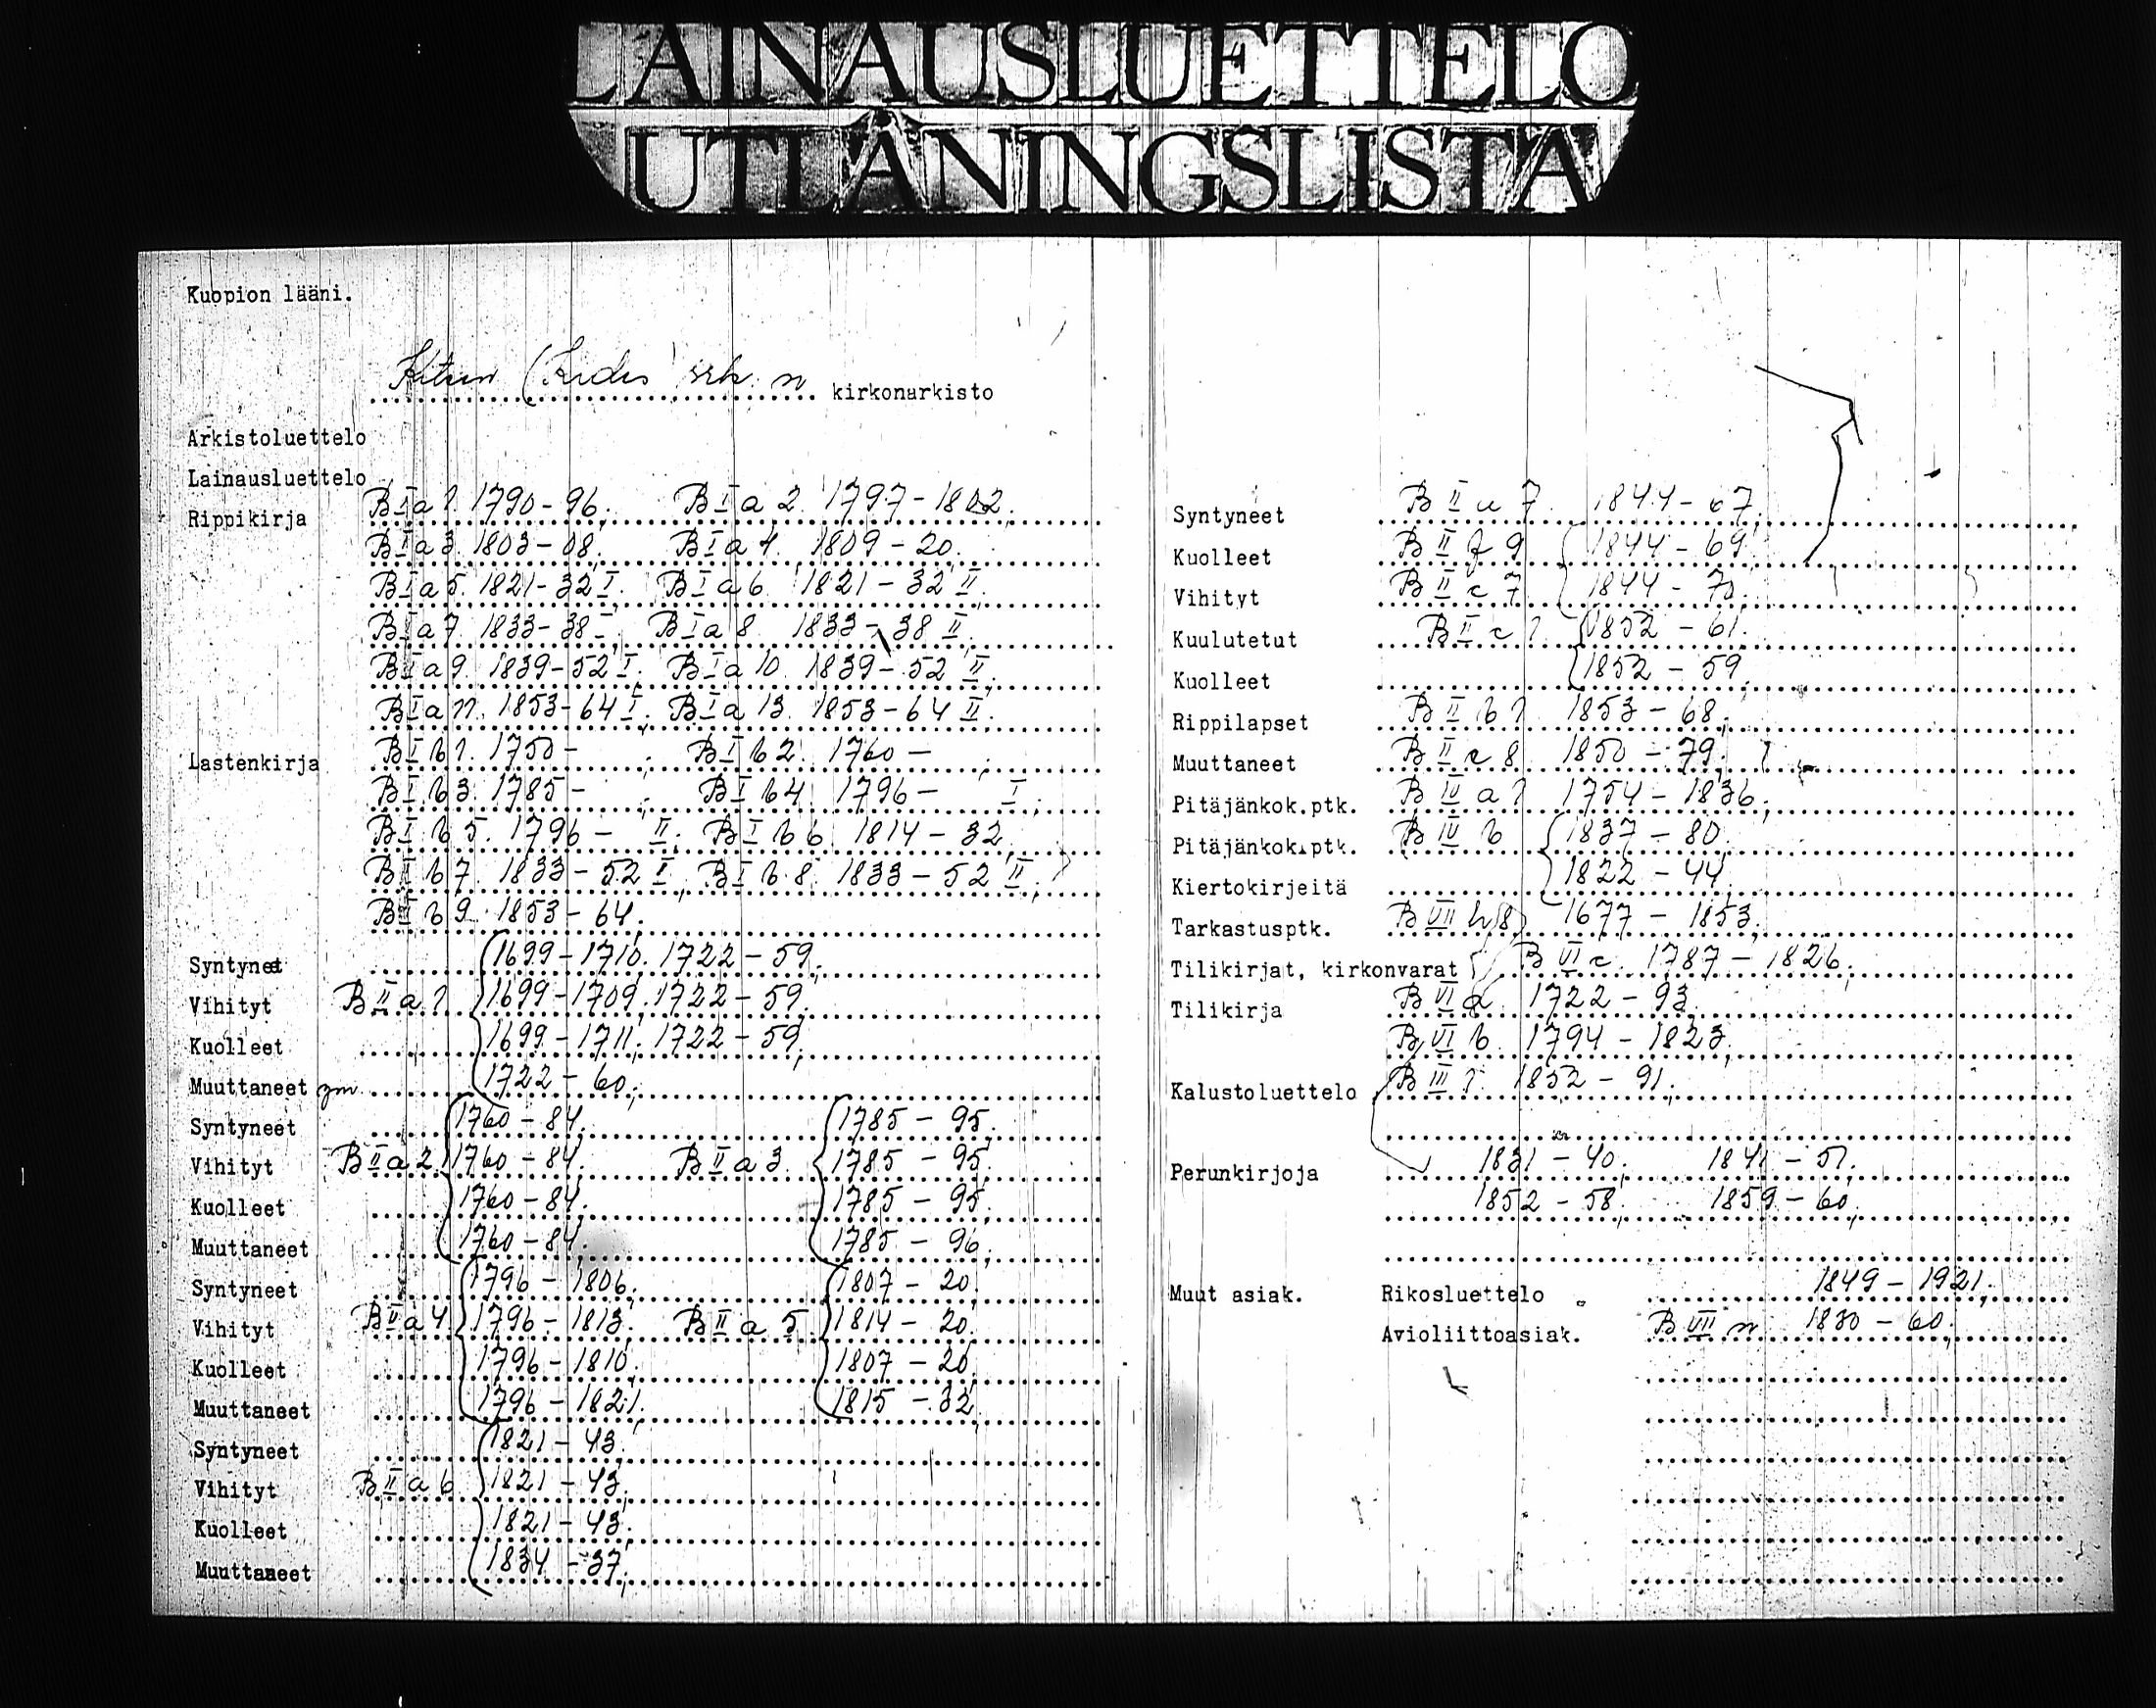 LAINAUSLUETTELO
UTLÅNINGSLISTA
Kuopion lääni.
Kiteen (Kides srk:n kirkonarkisto
Arkistoluettelo
Lainausluettelo
Rippikirja B I a 1. 1790-96. B I a 2. 1797-1802.
B I a 3. 1803-08. B I a 4. 1809-20.
B I a 5. 1821-32 I. B I a 6. 1821-32 II.
B I a 7. 1833-38 I. B I a 8. 1833-38 II.
B I a 9. 1839-52 I. B I a 10. 1839-52 II.
B I a 11. 1853-64 I. B I a 13. 1853-64 II.
Lastenkirja B I b 1. 1750- ; B I b 2. 1760- ;
B I b 3. 1785- ; B I b 4. 1796- I.
B I b 5. 1796- II. B I b 6. 1814-32.
B I b 7. 1833-52 I. B I b 8. 1833-52 II.
B I b 9. 1853-64.
Syntyneet 1699-1710. 1722-59.
Vihityt B II a 1 1699-1709. 1722-59.
Kuolleet 1699-1711. 1722-59.
Muuttaneet ym. 1722-60.
Syntyneet 1760-84. 1785-95.
Vihityt B II a 2. 1760-84. B II a 3. 1785-95.
Kuolleet 1760-84. 1785-95.
Muuttaneet 1760-84. 1785-96.
Syntyneet 1796-1806. 1807-20.
Vihityt B II a 4. 1796-1813. B II a 5. 1814-20.
Kuolleet 1796-1810. 1807-20.
Muuttaneet 1796-1821. 1815-32.
Syntyneet 1821-43.
Vihityt B II a 6. 1821-43.
Kuolleet 1821-43.
Muuttaneet 1834-37.
Syntyneet B II a 7. 1844-67.
Kuolleet B II f 9 1844-69.
Vihityt B II c 7 1844-
Kuulutetut B II c 1. 1852-61.
Kuolleet 1852-59.
Rippilapset B II b 1. 1853-68.
Muuttaneet B II c 8. 1850-79.
Pitäjänkok.ptk. B IV a 1. 1754-1836.
Pitäjänkok.ptk. B IV b 1837-80.
Kiertokirjeitä 1822-44.
Tarkastusptk. B VII h 8. 1677-1853.
Tilikirjat, kirkonvarat B VI c. 1787-1826.
Tilikirja B VI a. 1722-93.
B VI b. 1794-1823.
Kalustoluettelo B III 1. 1852-91.
Perunkirjoja 1831-40. 1841-51.
1852-58. 1859-60.
Muut asiak. Rikosluettelo 1849-1921.
Avioliittoasiak. B VII n. 1830-60.